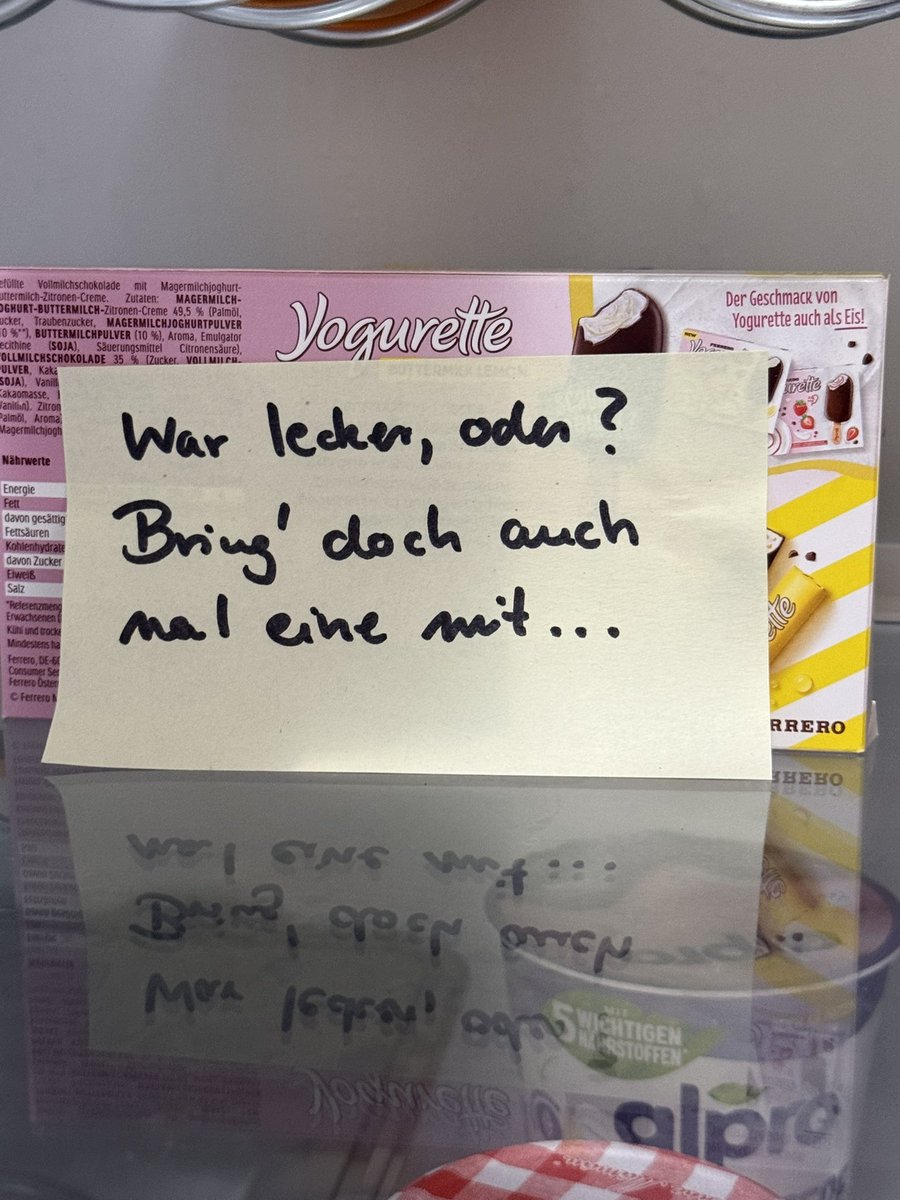 efüllte Vollmilchschokolade mit Magermilchjoghurt-
uttermilch-Zitronen-Creme. Zutaten: MAGERMILCH-
OGHURT-BUTTERMILCH-Zitronen-Creme 49,5 % (Palmöl,
ucker, Traubenzucker, MAGERMILCHJOGHURTPULVER
BUTTERMILCHPULVER (10 %), Aroma, Emulgator
ecithine (SOJA), Säuerungsmittel Citronensäure),
OLLMILCHSCHOKOLADE 35 % (Zucker, VOLLMILCH-
PULVER, Kaka
SOJA), Vanill
Kakaomasse,
Vanillin), Zitron
Palmöl, Aroma
Magermilchjogh
Nährwerte
Energie
Fett
davon gesättig
Fettsäuren
Kohlenhydrate
davon Zucker
Eiweiß
Salz
*Referenzmeng
Erwachsenen
Kühl und trocke
Mindestens ha
Ferrero, DE-60
Consumer Ser
Ferrero Öster
© Ferrero
Yogurette
BUTTERMILK LEMON
Der Geschmack von
Yogurette auch als Eis!
War lecker, oder?
Bring' doch auch
mal eine mit...
RRERO
MIT
5 WICHTIGEN
NÄHRSTOFFEN*
alpro